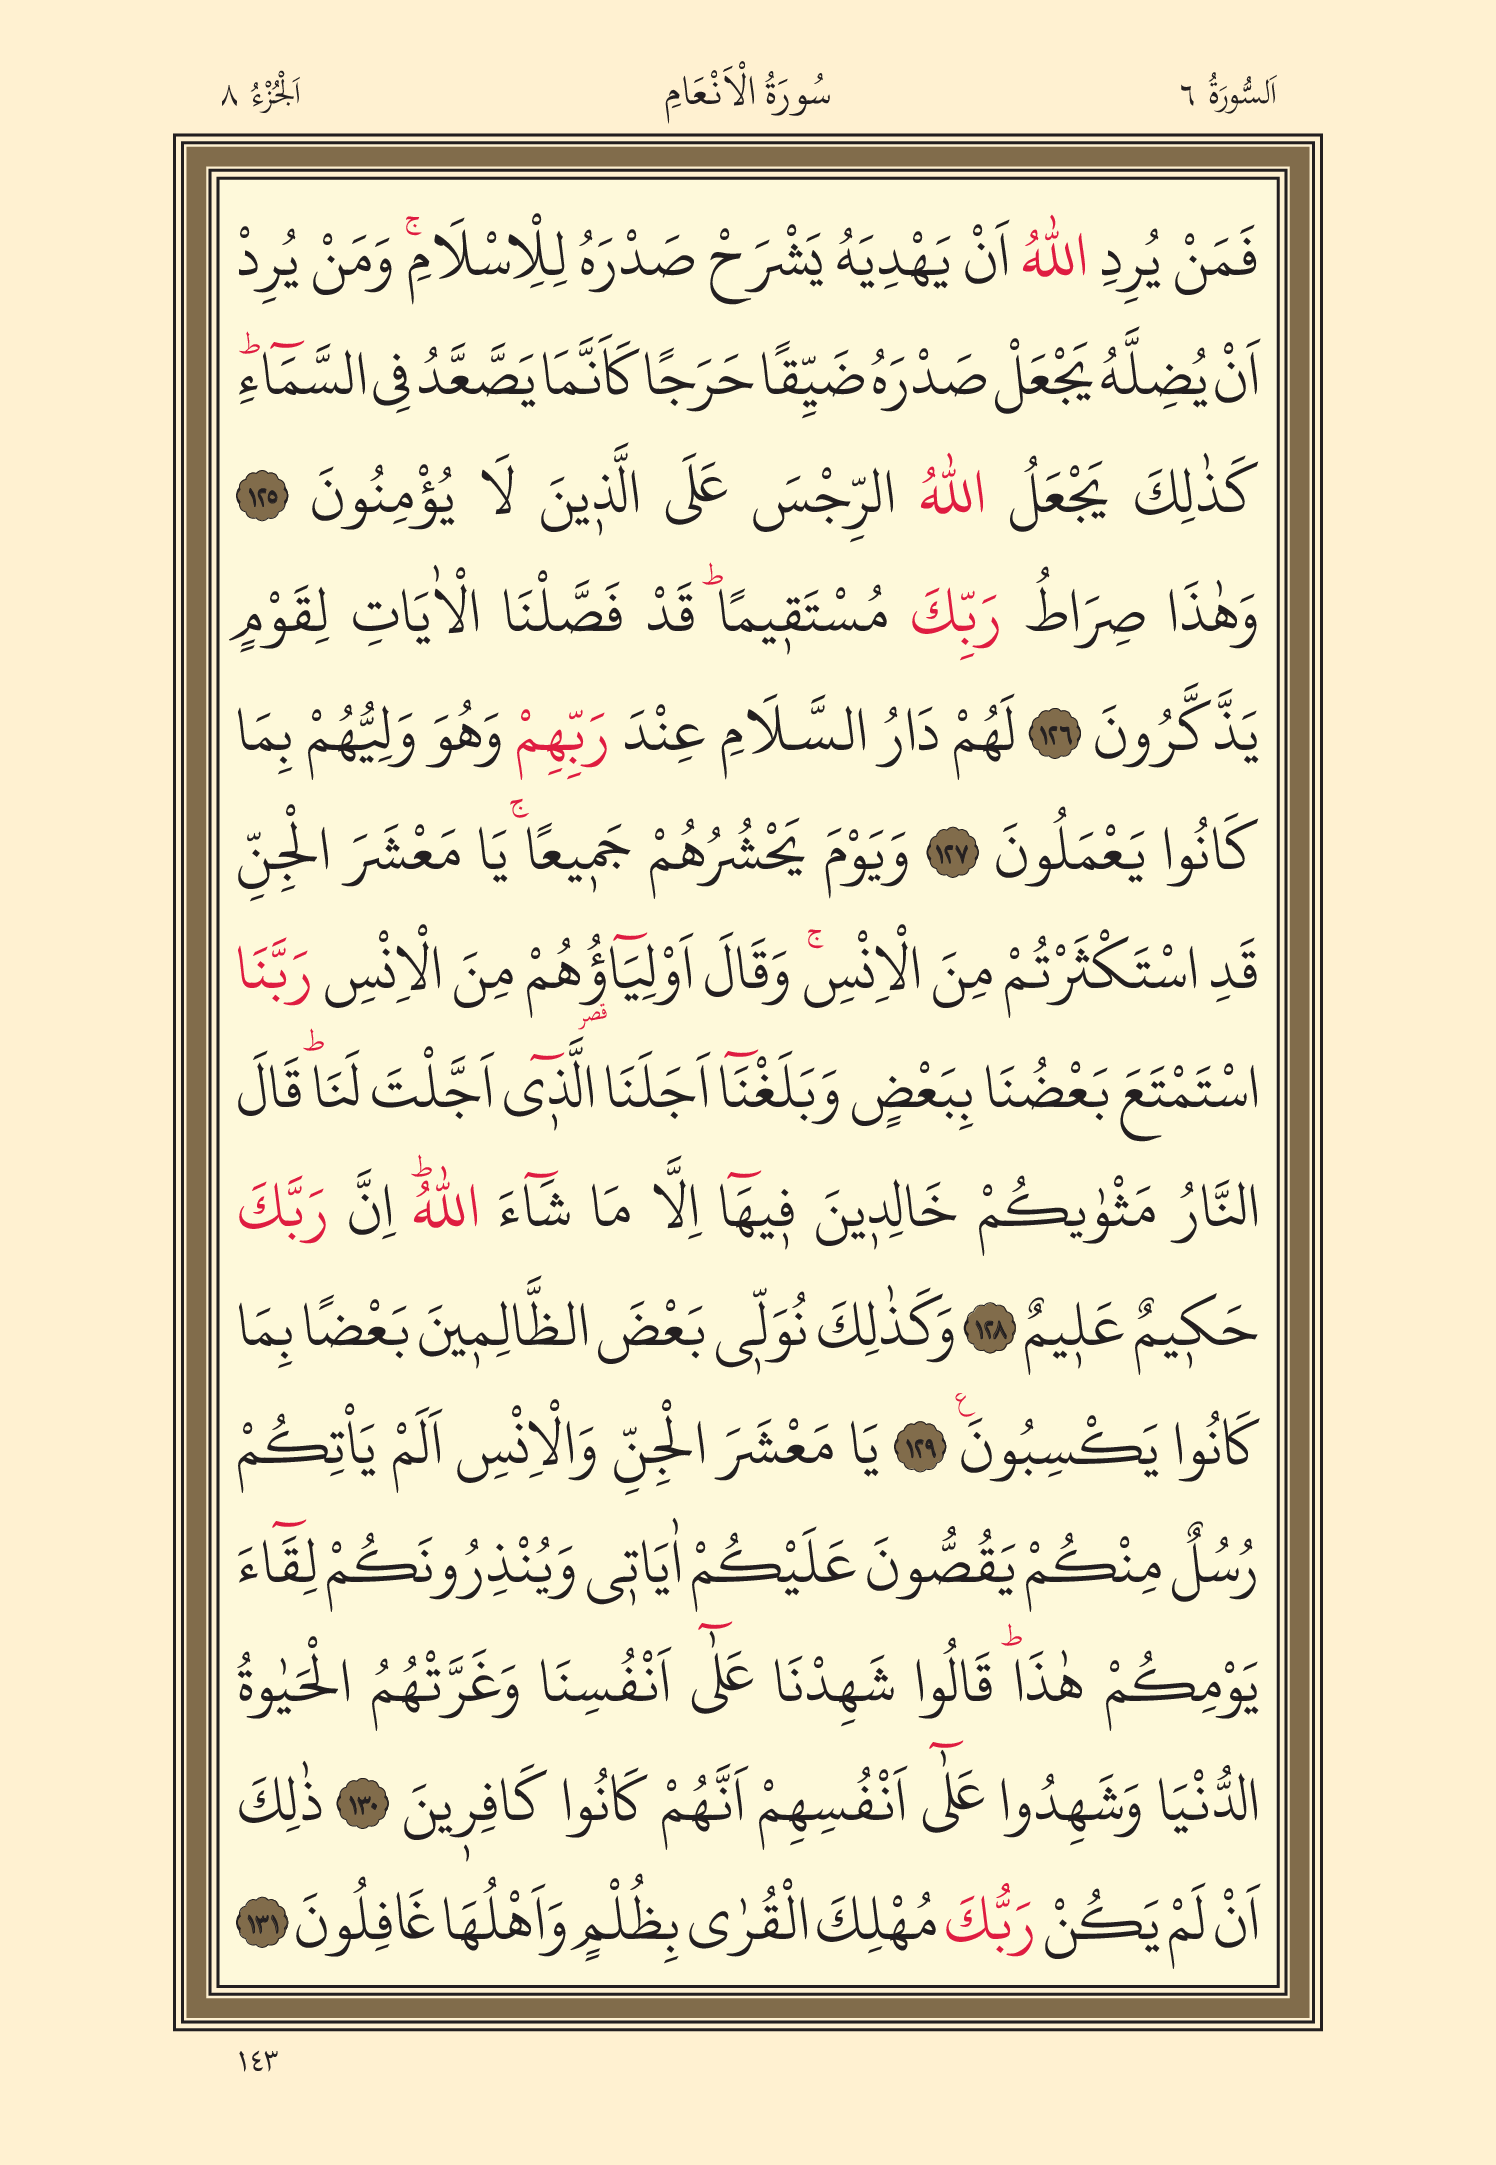 اَلسُّورَةُ ٦ سُورَةُ الْاَنْعَامِ اَلْجُزْءُ ٨
فَمَنْ يُرِدِ اللّٰهُ اَنْ يَهْدِيَهُ يَشْرَحْ صَدْرَهُ لِلْاِسْلَامِۚ وَمَنْ يُرِدْ
اَنْ يُضِلَّهُ يَجْعَلْ صَدْرَهُ ضَيِّقًا حَرَجًا كَاَنَّمَا يَصَّعَّدُ فِى السَّمَٓاءِۜ
كَذٰلِكَ يَجْعَلُ اللّٰهُ الرِّجْسَ عَلَى الَّذ۪ينَ لَا يُؤْمِنُونَ ﴿١٢٥﴾
وَهٰذَا صِرَاطُ رَبِّكَ مُسْتَق۪يمًاۜ قَدْ فَصَّلْنَا الْاٰيَاتِ لِقَوْمٍ
يَذَّكَّرُونَ ﴿١٢٦﴾ لَهُمْ دَارُ السَّلَامِ عِنْدَ رَبِّهِمْ وَهُوَ وَلِيُّهُمْ بِمَا
كَانُوا يَعْمَلُونَ ﴿١٢٧﴾ وَيَوْمَ يَحْشُرُهُمْ جَم۪يعًاۚ يَا مَعْشَرَ الْجِنِّ
قَدِ اسْتَكْثَرْتُمْ مِنَ الْاِنْسِۚ وَقَالَ اَوْلِيَٓاؤُ۬هُمْ مِنَ الْاِنْسِ رَبَّنَا
اسْتَمْتَعَ بَعْضُنَا بِبَعْضٍ وَبَلَغْنَٓا اَجَلَنَا الَّذ۪ٓى اَجَّلْتَ لَنَاۜ قَالَ
النَّارُ مَثْوٰيكُمْ خَالِد۪ينَ ف۪يهَٓا اِلَّا مَا شَٓاءَ اللّٰهُۜ اِنَّ رَبَّكَ
حَك۪يمٌ عَل۪يمٌ ﴿١٢٨﴾ وَكَذٰلِكَ نُوَلّ۪ى بَعْضَ الظَّالِم۪ينَ بَعْضًا بِمَا
كَانُوا يَكْسِبُونَ۟ ﴿١٢٩﴾ يَا مَعْشَرَ الْجِنِّ وَالْاِنْسِ اَلَمْ يَاْتِكُمْ
رُسُلٌ مِنْكُمْ يَقُصُّونَ عَلَيْكُمْ اٰيَات۪ى وَيُنْذِرُونَكُمْ لِقَٓاءَ
يَوْمِكُمْ هٰذَاۜ قَالُوا شَهِدْنَا عَلٰٓى اَنْفُسِنَا وَغَرَّتْهُمُ الْحَيٰوةُ
الدُّنْيَا وَشَهِدُوا عَلٰٓى اَنْفُسِهِمْ اَنَّهُمْ كَانُوا كَافِر۪ينَ ﴿١٣٠﴾ ذٰلِكَ
اَنْ لَمْ يَكُنْ رَبُّكَ مُهْلِكَ الْقُرٰى بِظُلْمٍ وَاَهْلُهَا غَافِلُونَ ﴿١٣١﴾
١٤٣